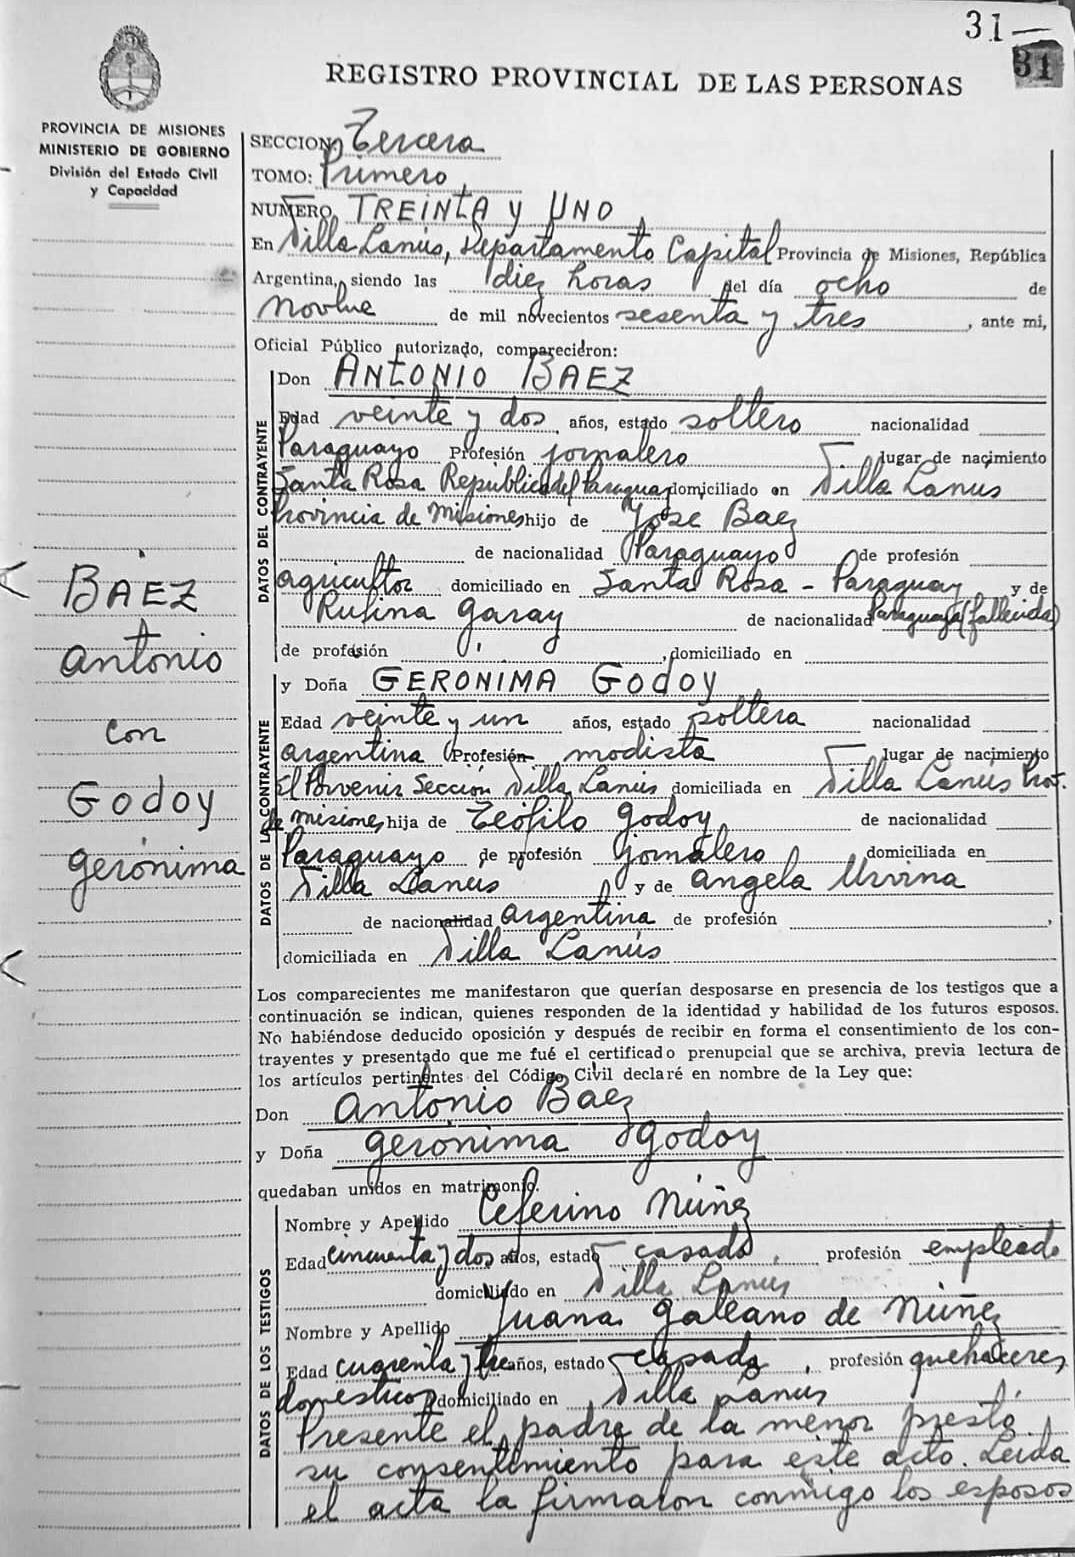 31—
31
REGISTRO PROVINCIAL DE LAS PERSONAS
PROVINCIA DE MISIONES
MINISTERIO DE GOBIERNO
División del Estado Civil
y Capacidad
SECCION Tercera
TOMO: Primero
NUMERO TREINTA Y UNO
En Villa Lanús, Departamento Capital Provincia de Misiones, República
Argentina, siendo las diez horas del día ocho de
Novbre de mil novecientos sesenta y tres, ante mi,
Oficial Público autorizado, comparecieron:
DATOS DEL CONTRAYENTE
Don ANTONIO BAEZ
Edad veinte y dos años, estado soltero nacionalidad
Paraguayo Profesión jornalero lugar de nacimiento
Santa Rosa Republica del Paraguay domiciliado en Villa Lanus
Provincia de Misiones hijo de Jose Baez
de nacionalidad Paraguayo de profesión
agricultor domiciliado en Santa Rosa - Paraguay y de
Rufina Garay de nacionalidad Paraguaya (fallecida)
de profesión domiciliado en
DATOS DE LA CONTRAYENTE
y Doña GERONIMA GODOY
Edad veinte y un años, estado soltera nacionalidad
argentina Profesión modista lugar de nacimiento
El Porvenir Sección Villa Lanus domiciliada en Villa Lanus Prov.
de misiones hija de Teófilo Godoy de nacionalidad
Paraguayo de profesión Jornalero domiciliada en
Villa Lanus y de Angela
de nacionalidad argentina de profesión ,
domiciliada en Villa Lanús
BAEZ
Antonio
con
Godoy
Gerónima
Los comparecientes me manifestaron que querían desposarse en presencia de los testigos que a
continuación se indican, quienes responden de la identidad y habilidad de los futuros esposos.
No habiéndose deducido oposición y después de recibir en forma el consentimiento de los con-
trayentes y presentado que me fué el certificado prenupcial que se archiva, previa lectura de
los artículos pertinentes del Código Civil declaré en nombre de la Ley que:
Don Antonio Baez
y Doña Gerónima Godoy
quedaban unidos en matrimonio.
DATOS DE LOS TESTIGOS
Nombre y Apellido Ceferino Núñez
Edad cincuenta y dos años, estado casado, profesión empleado
domiciliado en Villa Lanús
Nombre y Apellido Juana Galeano de Núñez
Edad cuarenta y tres años, estado casada, profesión quehaceres
domesticos domiciliado en Villa Lanús
Presente el padre de la menor prestó
su consentimiento para este acto. Leida
el acta la firmaron conmigo los esposos